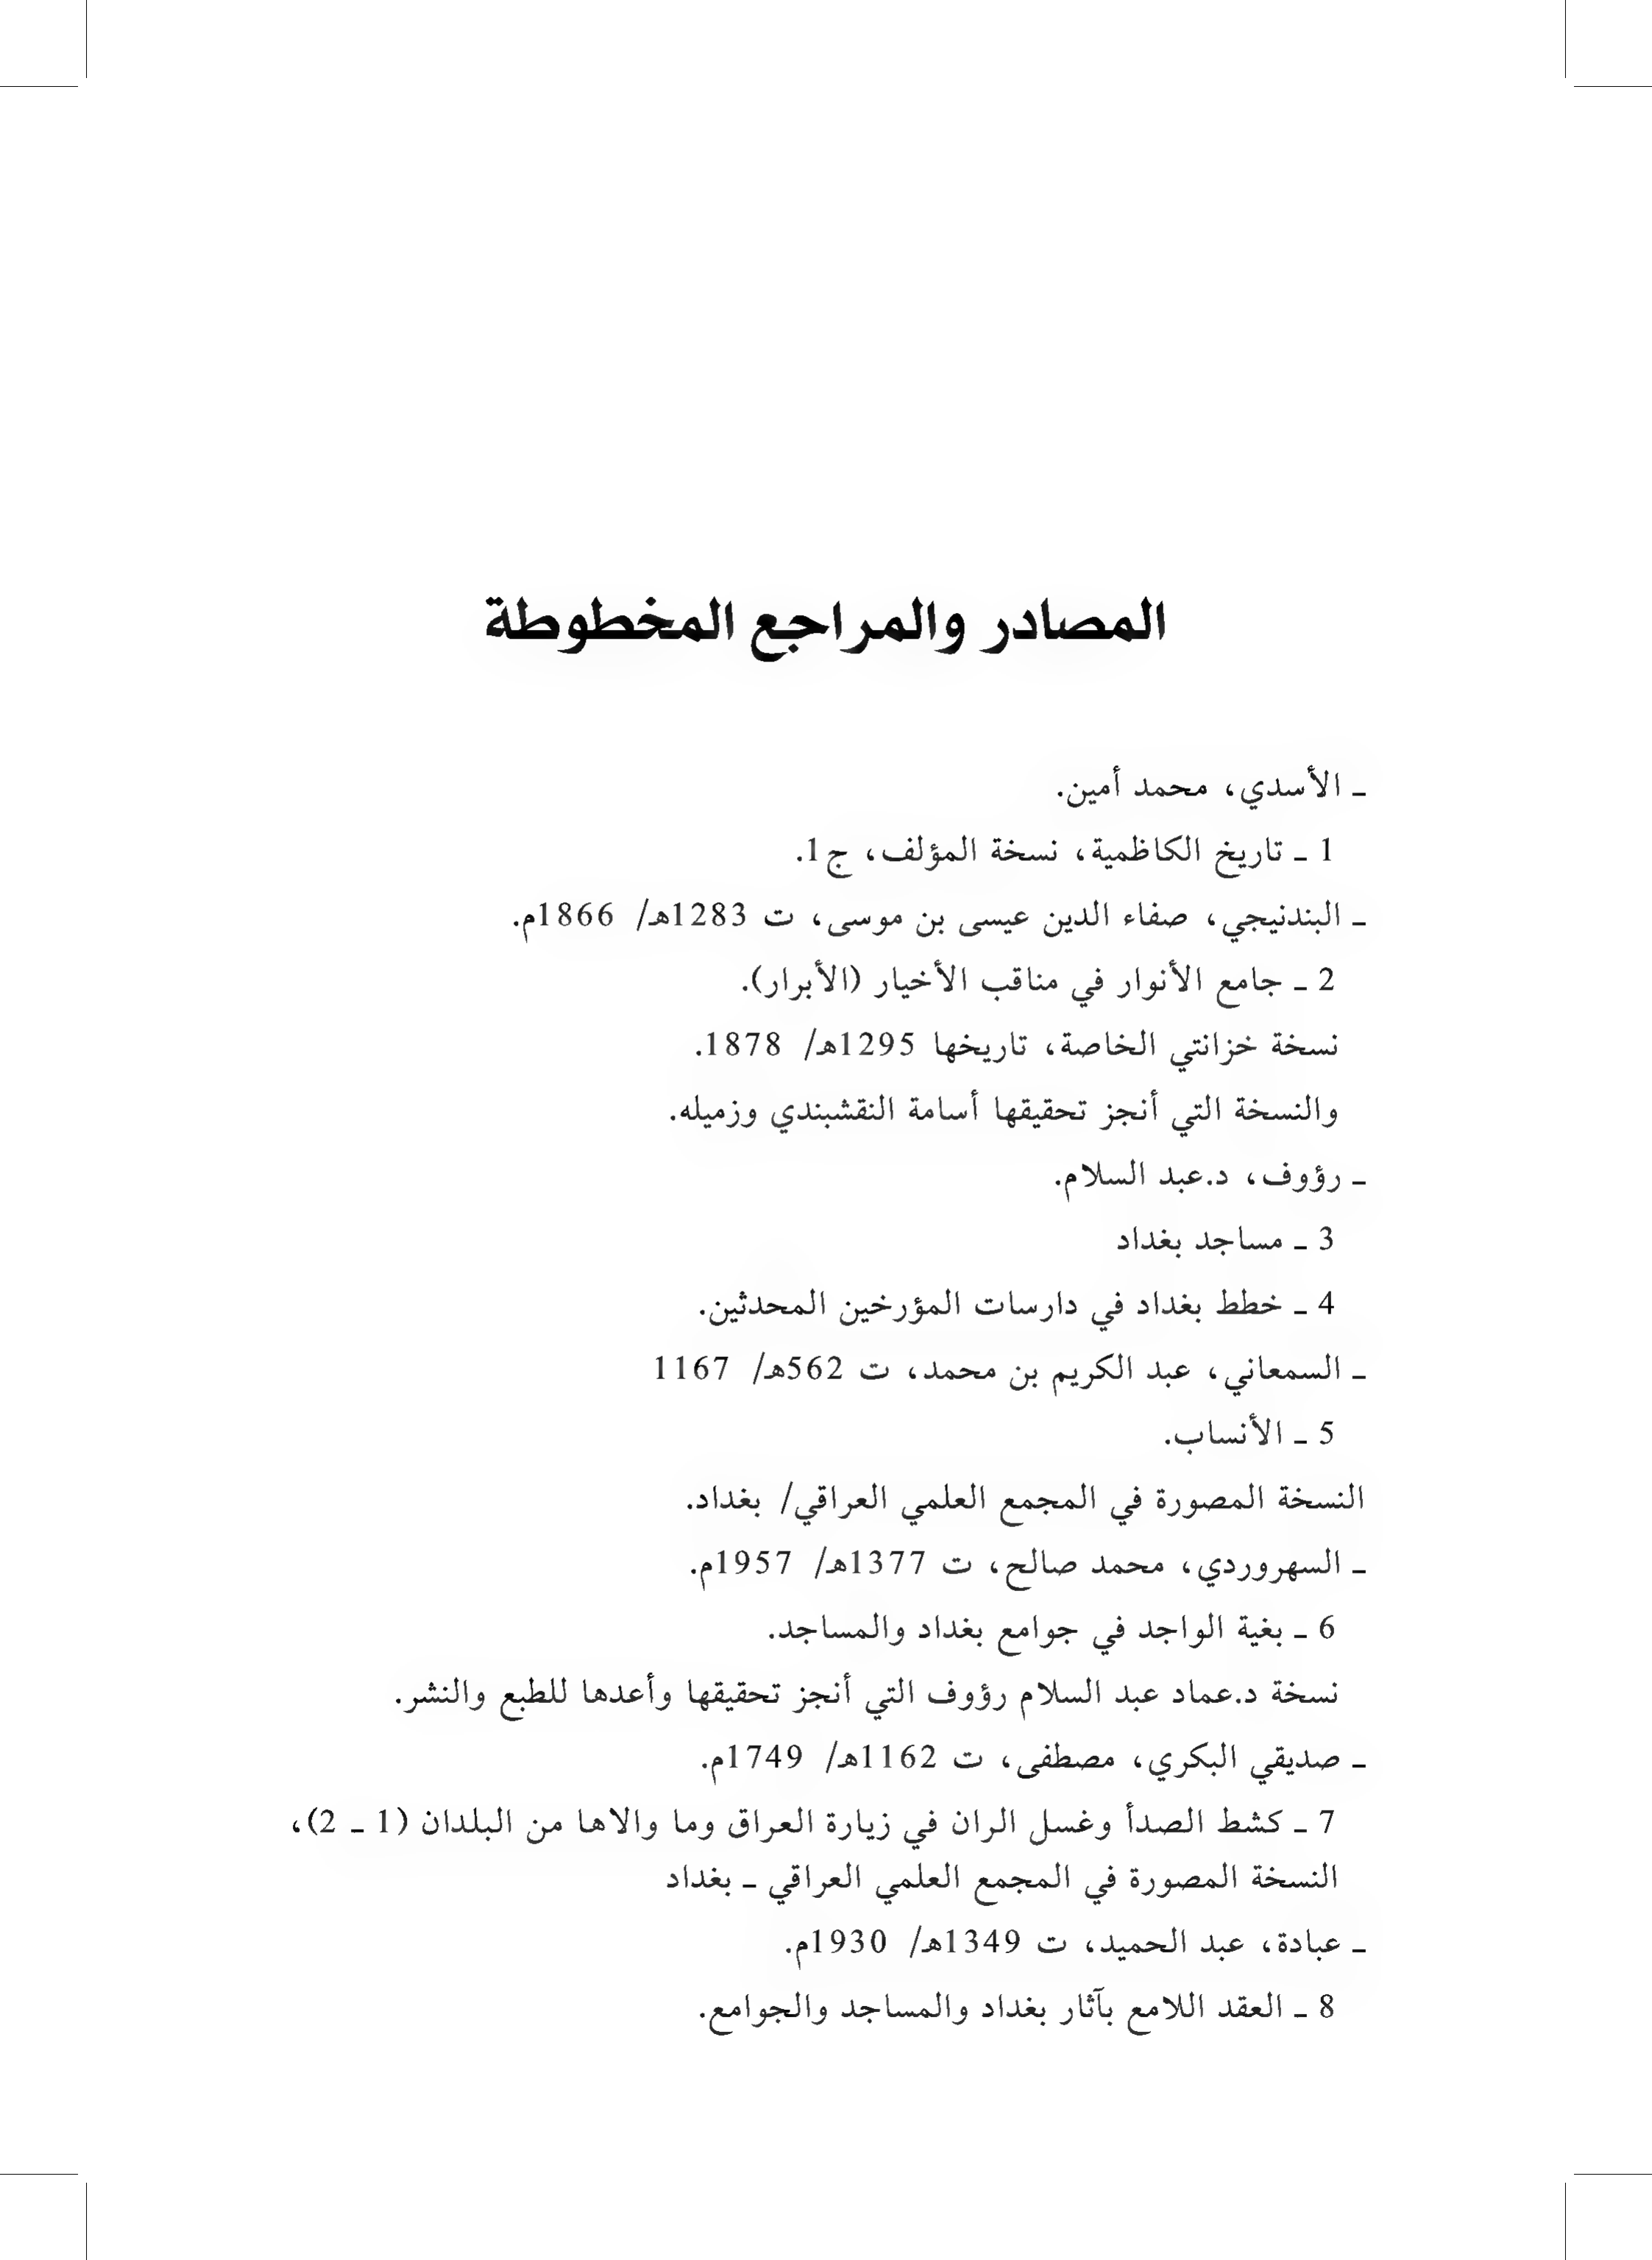 المصادر والمراجع المخطوطة
ـ الأسدي، محمد أمين.
1 ـ تاريخ الكاظمية، نسخة المؤلف، ج1.
ـ البندنيجي، صفاء الدين عيسى بن موسى، ت 1283هـ/ 1866م.
2 ـ جامع الأنوار في مناقب الأخيار (الأبرار).
نسخة خزانتي الخاصة، تاريخها 1295هـ/ 1878.
والنسخة التي أنجز تحقيقها أسامة النقشبندي وزميله.
ـ رؤوف، د.عبد السلام.
3 ـ مساجد بغداد
4 ـ خطط بغداد في دارسات المؤرخين المحدثين.
ـ السمعاني، عبد الكريم بن محمد، ت 562هـ/ 1167
5 ـ الأنساب.
النسخة المصورة في المجمع العلمي العراقي/ بغداد.
ـ السهروردي، محمد صالح، ت 1377هـ/ 1957م.
6 ـ بغية الواجد في جوامع بغداد والمساجد.
نسخة د.عماد عبد السلام رؤوف التي أنجز تحقيقها وأعدها للطبع والنشر.
ـ صديقي البكري، مصطفى، ت 1162هـ/ 1749م.
7 ـ كشط الصدأ وغسل الران في زيارة العراق وما والاها من البلدان (1 ـ 2)،
النسخة المصورة في المجمع العلمي العراقي ـ بغداد
ـ عبادة، عبد الحميد، ت 1349هـ/ 1930م.
8 ـ العقد اللامع بآثار بغداد والمساجد والجوامع.